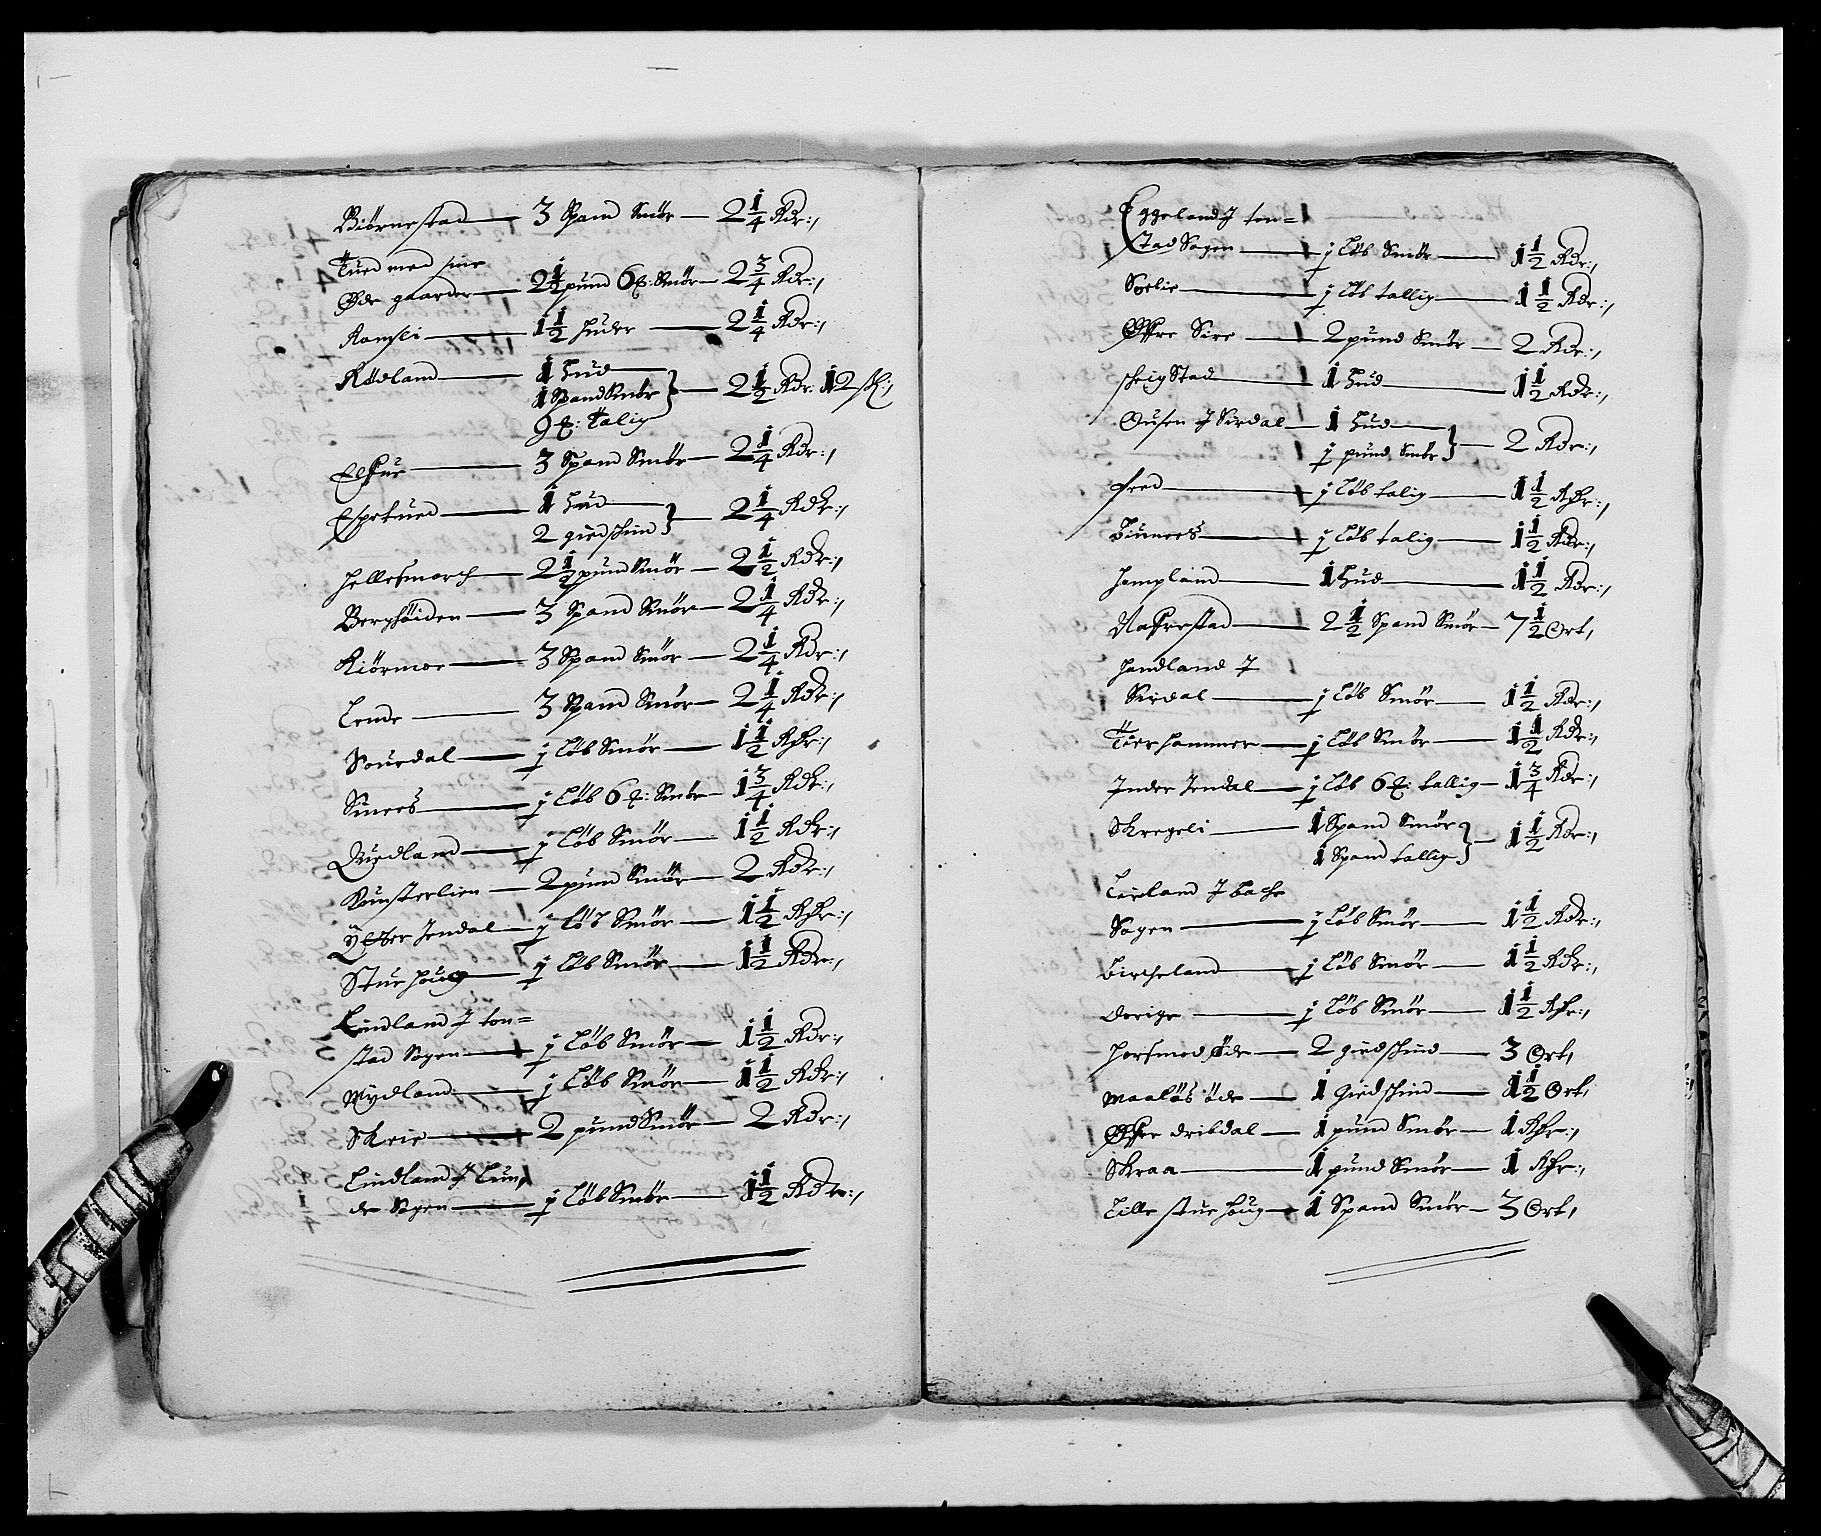 Biørnestad — 3 Spand Smör — 2 1/4 Rdr:,
Tued med sine
Øde gaarder — 2 1/2 pund 6 : Smör — 2 3/4 Rdr:,
Ramsli — 1 1/2 huder — 2 1/4 Rdr:,
Rödland — 1 hud
1 Spand Smör — 2 1/2 Rdr: 12 sk:,
9 : talig
— 3 Spand Smör — 2 1/4 Rdr:,
Espetued — 1 hud
2 giedschind — 2 1/4 Rdr:,
Hellesmarch — 2 1/2 pund Smör — 2 1/2 Rdr:,
Berghöiden — 3 Spand Smör — 2 1/4 Rdr:,
Kiörmoe — 3 Spand Smör — 2 1/4 Rdr:,
Lende — 3 Spand Smör — 2 1/4 Rdr:,
Souedal — j Löb Smör — 1 1/2 Rdr:,
Sinnes — j Löb 6 : Smör — 1 3/4 Rdr:,
Quedland — j Löb Smör — 1 1/2 Rdr:,
— 2 pund Smör — 2 Rdr:,
Ÿtter Jendal — j Löb Smör — 1 1/2 Rdr:,
Stuehoug — j Löb Smör — 1 1/2 Rdr:,
Lindland J ton=
stad Sogen — j Löb Smör — 1 1/2 Rdr:,
Mydland — j Löb Smör — 1 1/2 Rdr:,
Skeie — 2 pund Smör — 2 Rdr:,
Lindland J Lun,
de Sogen — j Löb Smör — 1 1/2 Rdr:,
Eggeland J ton=
stad Sogen — j Löb Smör — 1 1/2 Rdr:,
Soelie — j Löb tallig — 1 1/2 Rdr:,
Øfre Sire — 2 pund Smör — 2 Rdr:,
schrigstad — 1 hud — 1 1/2 Rdr:,
Ousen J Sirdal — 1 hud
j pund Smör — 2 Rdr:,
fred — j Löb talig — 1 1/2 Rdr:,
— j Löb talig — 1 1/2 Rdr:,
Hompland — 1 hud — 1 1/2 Rdr:,
Nafrestad — 2 1/2 Spand Smör — 7 1/2 Ort,
Handland J
Sirdal — j Löb Smör — 1 1/2 Rdr:,
Tierhammer — j Löb Smör — 1 1/2 Rdr:,
Inder Jendal — j Löb 6 : tallig — 1 3/4 Rdr:,
Skregeli — 1 Spand Smör
1 Spand tallig — 1 1/2 Rdr:,
J bache
Sogen — j Löb Smör — 1 1/2 Rdr:,
Bircheland — j Löb Smör — 1 1/2 Rdr:,
Dorige — j Löb Smör — 1 1/2 Rdr:,
øde — 2 giedschind — 3 Ort,
Maalös öde — 1 giedschind — 1 1/2 Ort,
Øfre dribdal — 1 pund Smör — 1 Rdr:,
Skraa — 1 pund Smör — 1 Rdr:,
Lille stuehoug — 1 Spand Smör — 3 Ort,